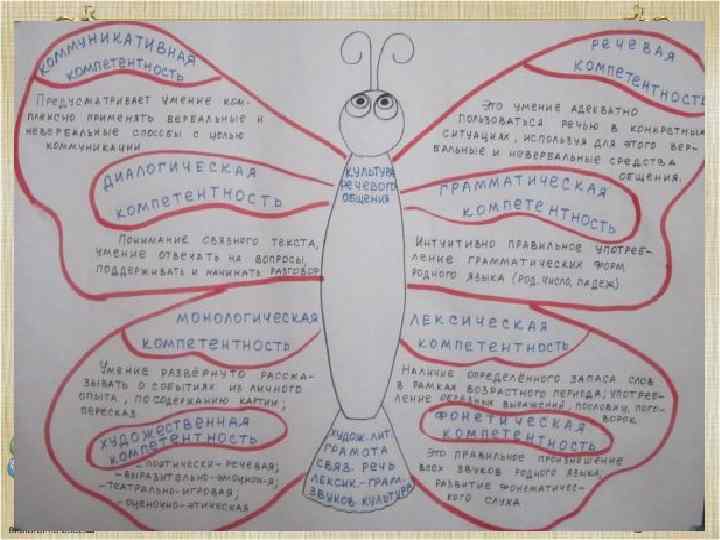 КОММУНИКАТИВНАЯ
КОМПЕТЕНТНОСТЬ
ПРЕДУСМАТРИВАЕТ УМЕНИЕ КОМ-
ПЛЕКСНО ПРИМЕНЯТЬ ВЕРБАЛЬНЫЕ И
НЕВЕРБАЛЬНЫЕ СПОСОБЫ С ЦЕЛЬЮ
КОММУНИКАЦИИ
ДИАЛОГИЧЕСКАЯ
КОМПЕТЕНТНОСТЬ
ПОНИМАНИЕ СВЯЗНОГО ТЕКСТА,
УМЕНИЕ ОТВЕЧАТЬ НА ВОПРОСЫ,
ПОДДЕРЖИВАТЬ И НАЧИНАТЬ РАЗГОВОР
МОНОЛОГИЧЕСКАЯ
КОМПЕТЕНТНОСТЬ
УМЕНИЕ РАЗВЁРНУТО РАССКА-
ЗЫВАТЬ О СОБЫТИЯХ ИЗ ЛИЧНОГО
ОПЫТА, ПО СОДЕРЖАНИЮ КАРТИН;
ПЕРЕСКАЗ
ХУДОЖЕСТВЕННАЯ
КОМПЕТЕНТНОСТЬ
-ПОЭТИЧЕСКИ-РЕЧЕВАЯ;
-ВЫРАЗИТЕЛЬНО-ЭМОЦИОН-Я;
-ТЕАТРАЛЬНО-ИГРОВАЯ;
-ОЦЕНОЧНО-ЭТИЧЕСКАЯ
КУЛЬТУРА
РЕЧЕВОГО
ОБЩЕНИЯ
ХУДОЖ. ЛИТ.
ГРАМОТА
СВЯЗ. РЕЧЬ
ЛЕКСИК-ГРАМ.
ЗВУКОВ. КУЛЬТУРА
РЕЧЕВАЯ
КОМПЕТЕНТНОСТЬ
ЭТО УМЕНИЕ АДЕКВАТНО
ПОЛЬЗОВАТЬСЯ РЕЧЬЮ В КОНКРЕТНЫХ
СИТУАЦИЯХ, ИСПОЛЬЗУЯ ДЛЯ ЭТОГО ВЕР-
БАЛЬНЫЕ И НЕВЕРБАЛЬНЫЕ СРЕДСТВА
ОБЩЕНИЯ.
ГРАММАТИЧЕСКАЯ
КОМПЕТЕНТНОСТЬ
ИНТУИТИВНО ПРАВИЛЬНОЕ УПОТРЕБ-
ЛЕНИЕ ГРАММАТИЧЕСКИХ ФОРМ
РОДНОГО ЯЗЫКА (РОД, ЧИСЛО, ПАДЕЖ)
ЛЕКСИЧЕСКАЯ
КОМПЕТЕНТНОСТЬ
НАЛИЧИЕ ОПРЕДЕЛЁННОГО ЗАПАСА СЛОВ
В РАМКАХ ВОЗРАСТНОГО ПЕРИОДА; УПОТРЕБ-
ЛЕНИЕ ОБРАЗНЫХ ВЫРАЖЕНИЙ, ПОСЛОВИЦ, ПОГО-
ВОРОК
ФОНЕТИЧЕСКАЯ
КОМПЕТЕНТНОСТЬ
ЭТО ПРАВИЛЬНОЕ ПРОИЗНОШЕНИЕ
ВСЕХ ЗВУКОВ РОДНОГО ЯЗЫКА,
РАЗВИТИЕ ФОНЕМАТИЧЕС-
КОГО СЛУХА